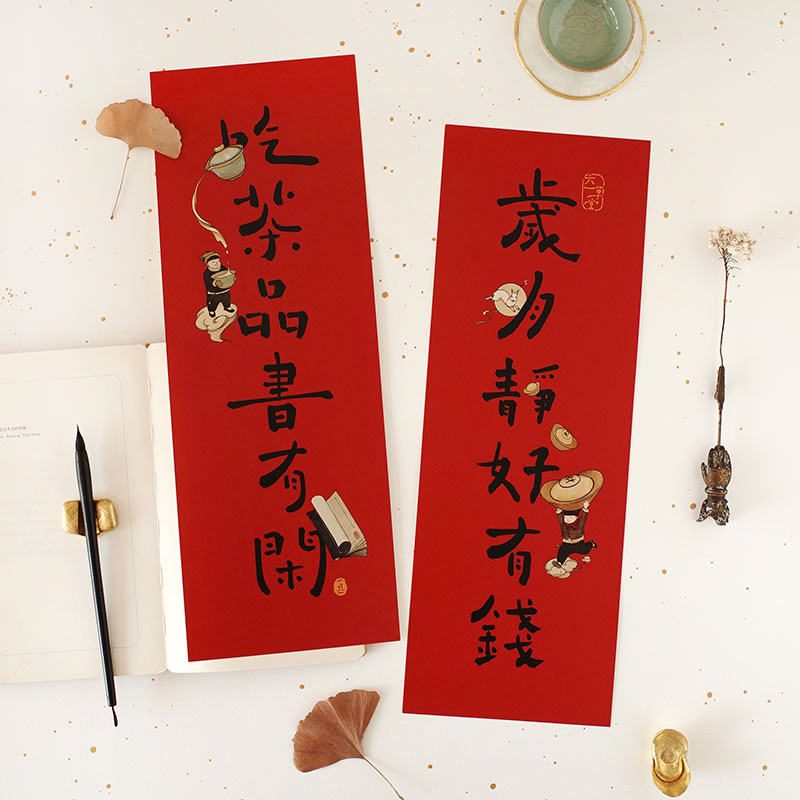 吃茶品書有閑
歲月靜好有錢